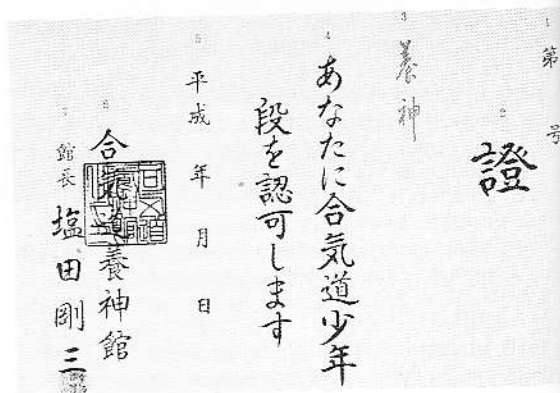 1
第 号
2
證
3
養神
4
あなたに合気道少年
段を認可します
5
平成 年 月 日
6
合気道養神館
7
館長 塩田剛三